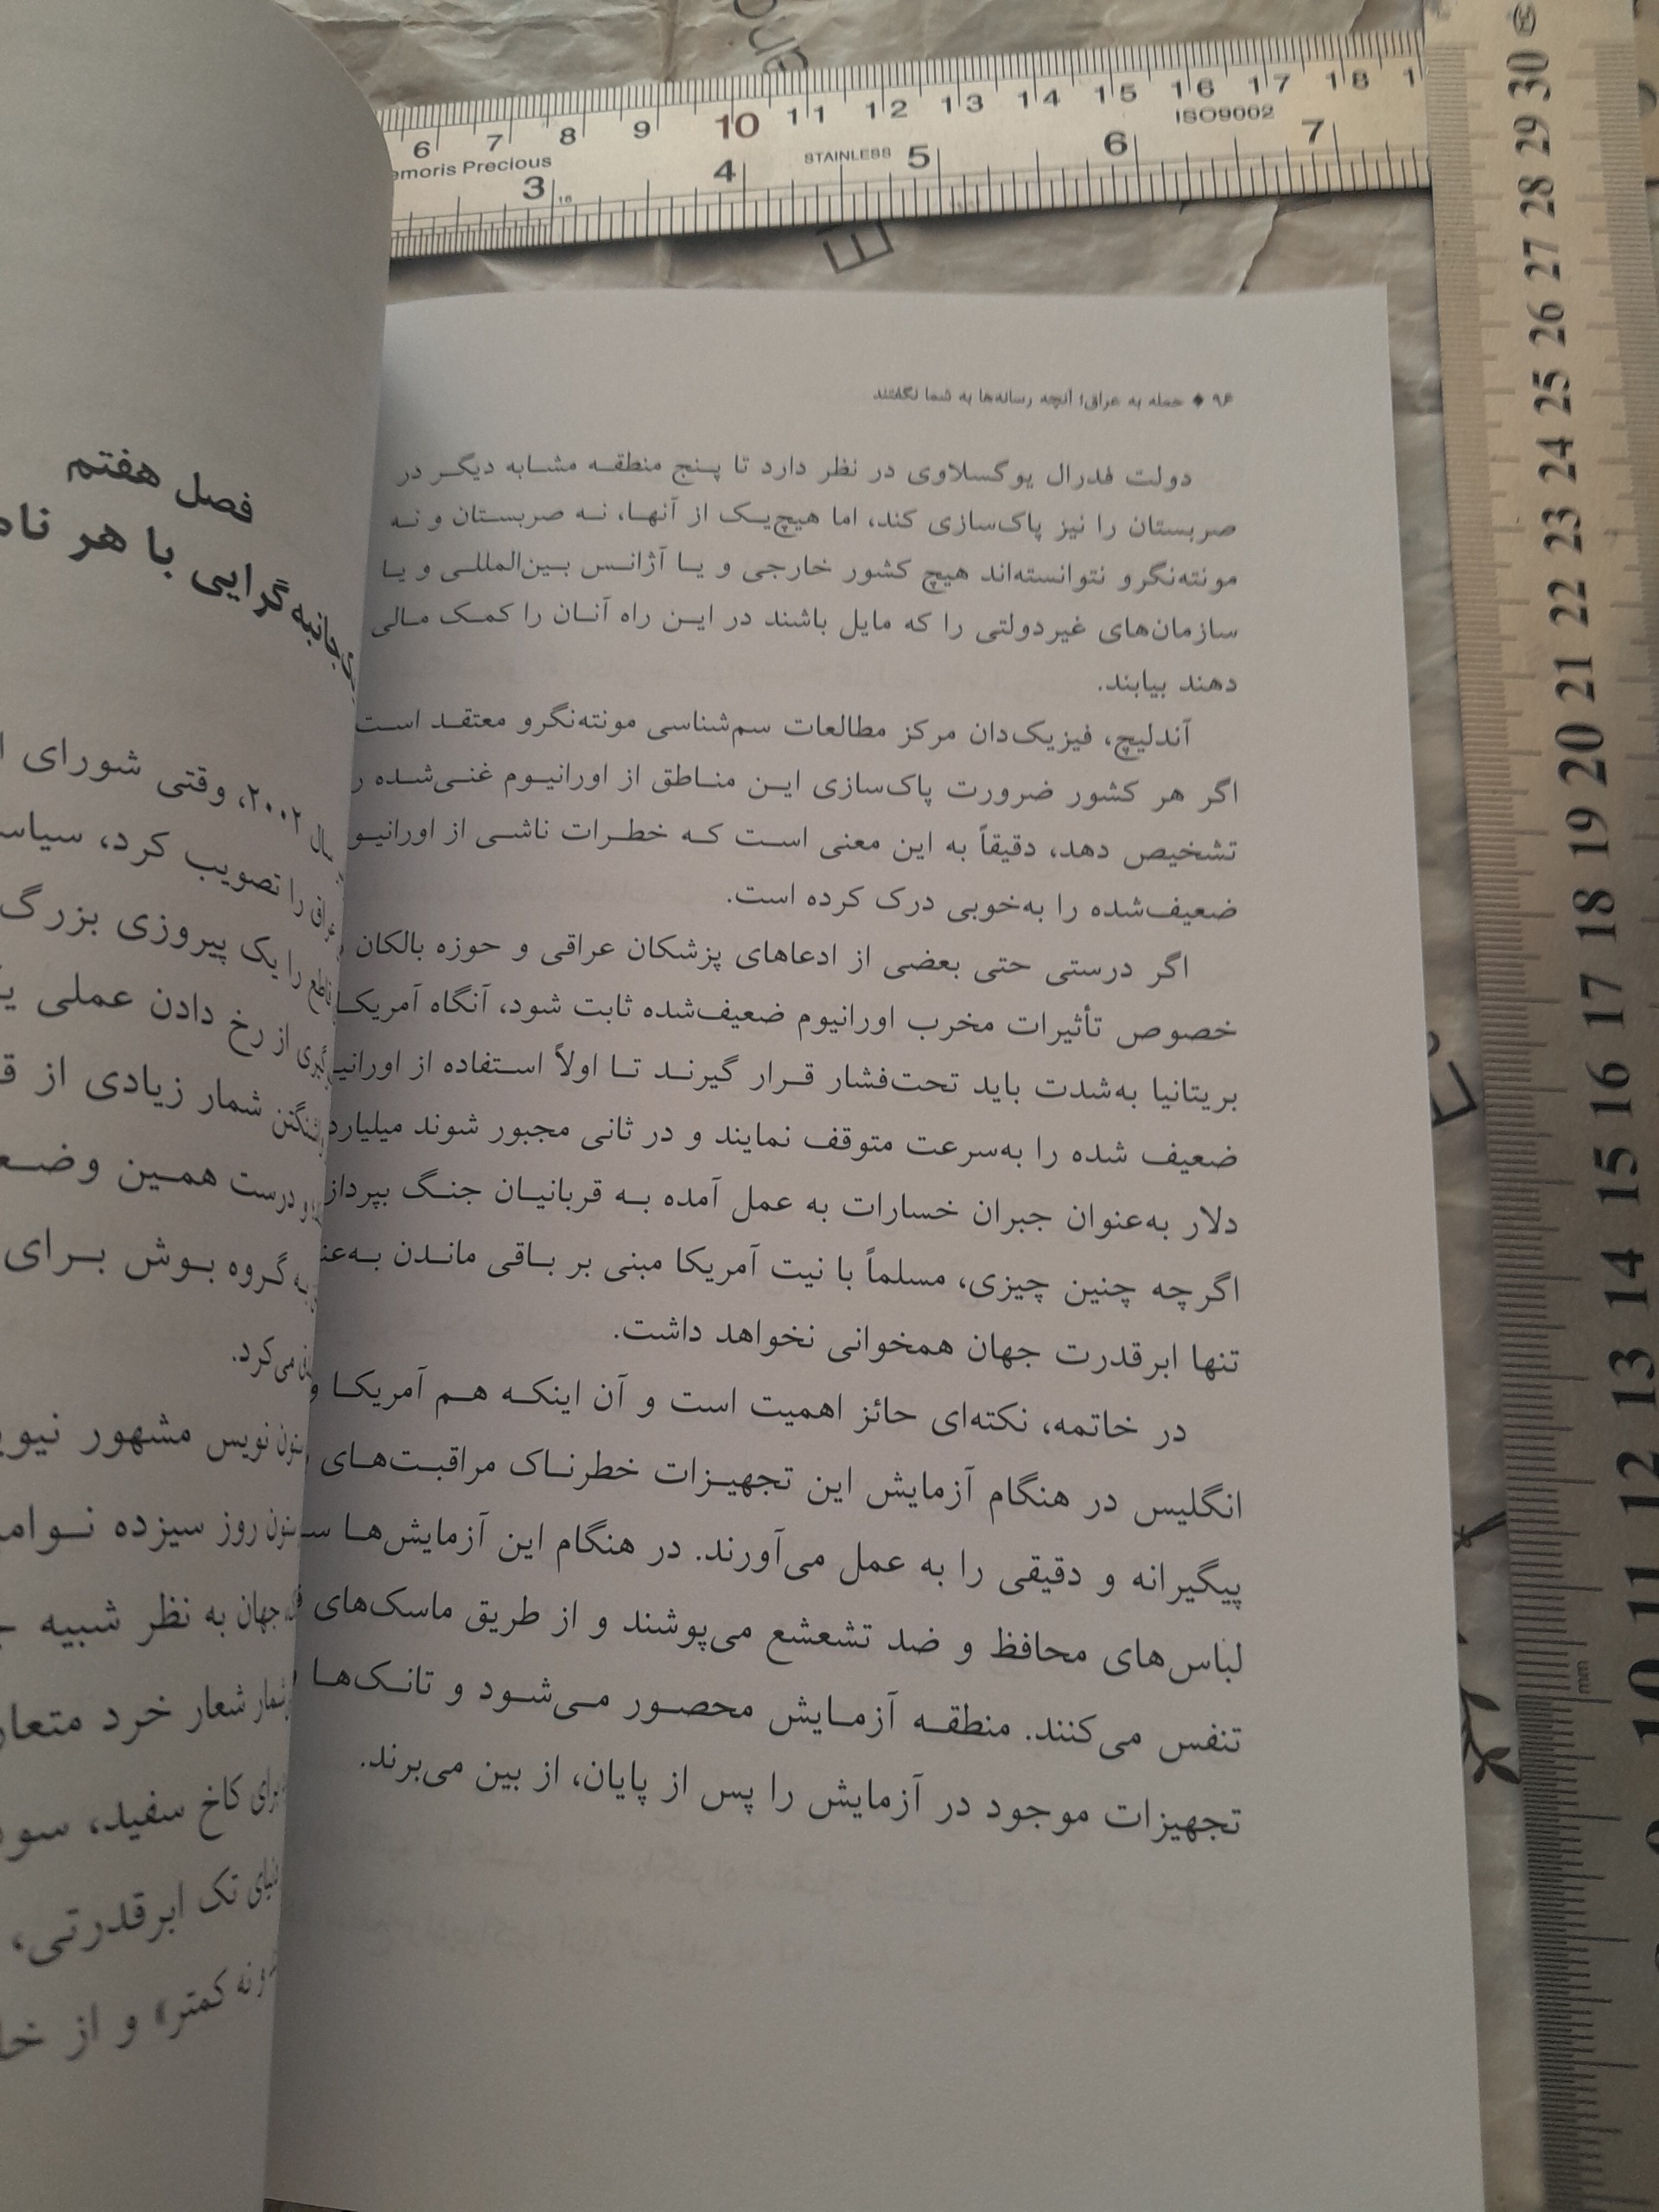 ۹۶ ◆ حمله به عراق؛ آنچه رسانه‌ها به شما نگفتند
دولت فدرال یوگسلاوی در نظر دارد تا پنج منطقه مشابه دیگر در
صربستان را نیز پاک‌سازی کند، اما هیچ‌یک از آنها، نه صربستان و نه
مونته‌نگرو نتوانسته‌اند هیچ کشور خارجی و یا آژانس بین‌المللی و یا
سازمان‌های غیردولتی را که مایل باشند در این راه آنان را کمک مالی
دهند بیابند.
آندلیچ، فیزیک‌دان مرکز مطالعات سم‌شناسی مونته‌نگرو معتقد است
اگر هر کشور ضرورت پاک‌سازی این مناطق از اورانیوم غنی‌شده
تشخیص دهد، دقیقاً به این معنی است که خطرات ناشی از
ضعیف‌شده را به‌خوبی درک کرده است.
اگر درستی حتی بعضی از ادعاهای پزشکان عراقی و حوزه بالکان
خصوص تأثیرات مخرب اورانیوم ضعیف‌شده ثابت شود، آنگاه آمریکا
بریتانیا به‌شدت باید تحت‌فشار قرار گیرند تا اولاً استفاده از
ضعیف شده را به‌سرعت متوقف نمایند و در ثانی مجبور شوند
دلار به‌عنوان جبران خسارات به عمل آمده به قربانیان جنگ
اگرچه چنین چیزی، مسلماً با نیت آمریکا مبنی بر باقی ماندن
تنها ابرقدرت جهان همخوانی نخواهد داشت.
در خاتمه، نکته‌ای حائز اهمیت است و آن اینکه هم آمریکا و
انگلیس در هنگام آزمایش این تجهیزات خطرناک مراقبت‌های
پیگیرانه و دقیقی را به عمل می‌آورند. در هنگام این آزمایش‌ها
لباس‌های محافظ و ضد تشعشع می‌پوشند و از طریق ماسک‌های
تنفس می‌کنند. منطقه آزمایش محصور می‌شود و تانک‌ها
تجهیزات موجود در آزمایش را پس از پایان، از بین می‌برند.
فصل هفتم
جانبه‌گرایی با هر
سال ۲۰۰۲، وقتی شورای
را تصویب کرد،
را یک پیروزی بزرگ
از رخ دادن عملی
شمار زیادی از
و درست همین
گروه بوش برای
می‌کرد.
نویس مشهور
روز سیزده
جهان به نظر شبیه
شعار خرد
برای کاخ سفید،
تک ابرقدرتی،
کمتر» و از
6 7 8 9 10 11 12 13 14 15 16 17 18
emoris Precious
STAINLESS
ISO9002
3 4 5 6 7
16
30 29 28 27 26 25 24 23 22 21 20 19 18 17 16 15 14 13 12 11 10
mm